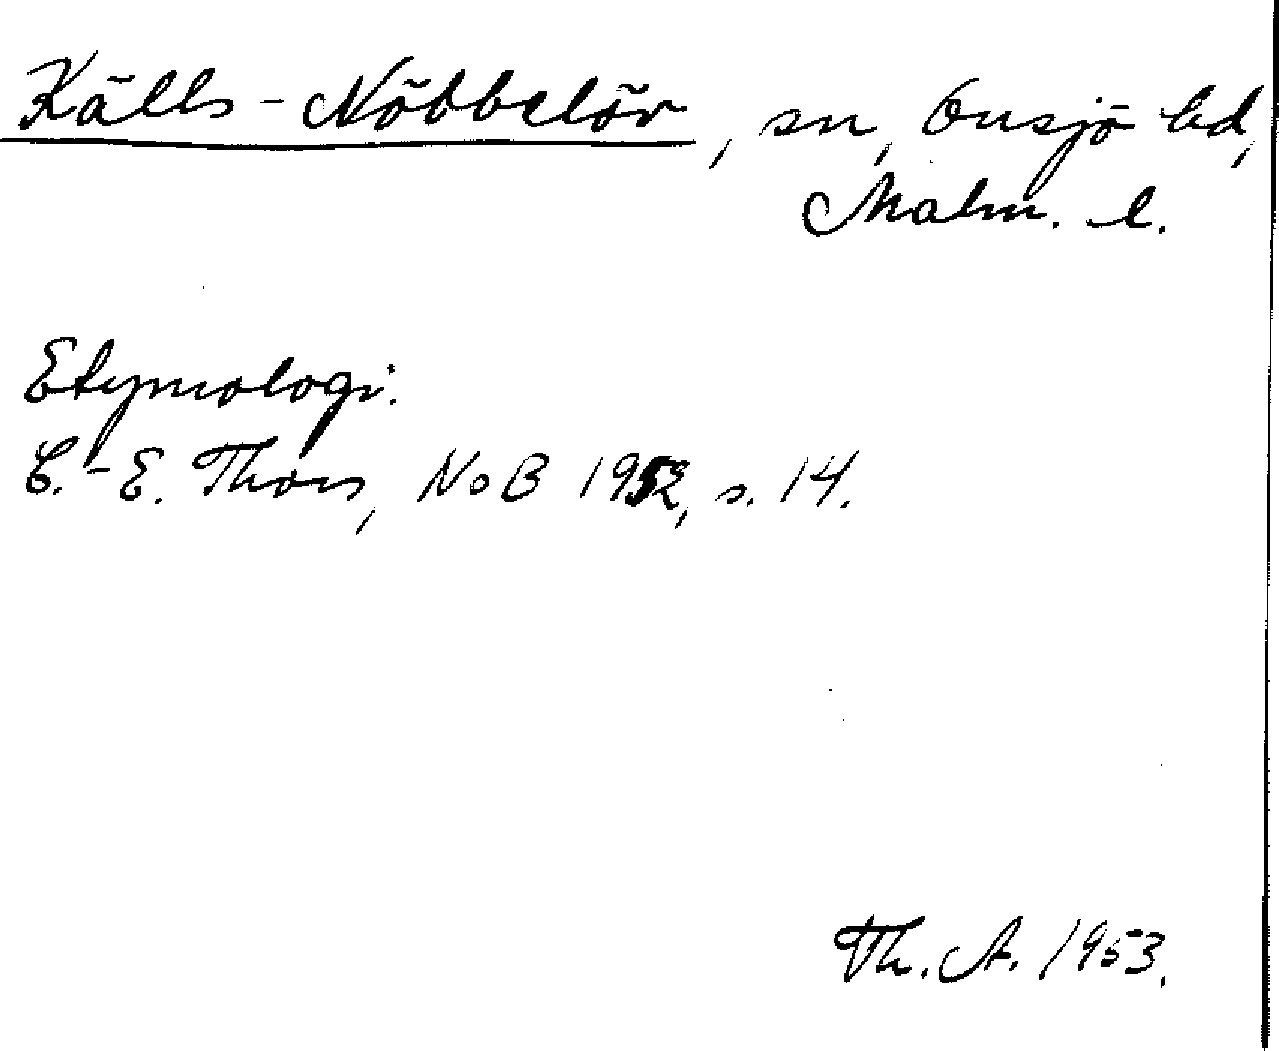 Källs-Nöbbelöv, sn, Onsjö hd,
Malm. l.
Etymologi.
C.-E. Thors, NoB 1952, s. 14.
Th. A. 1953.